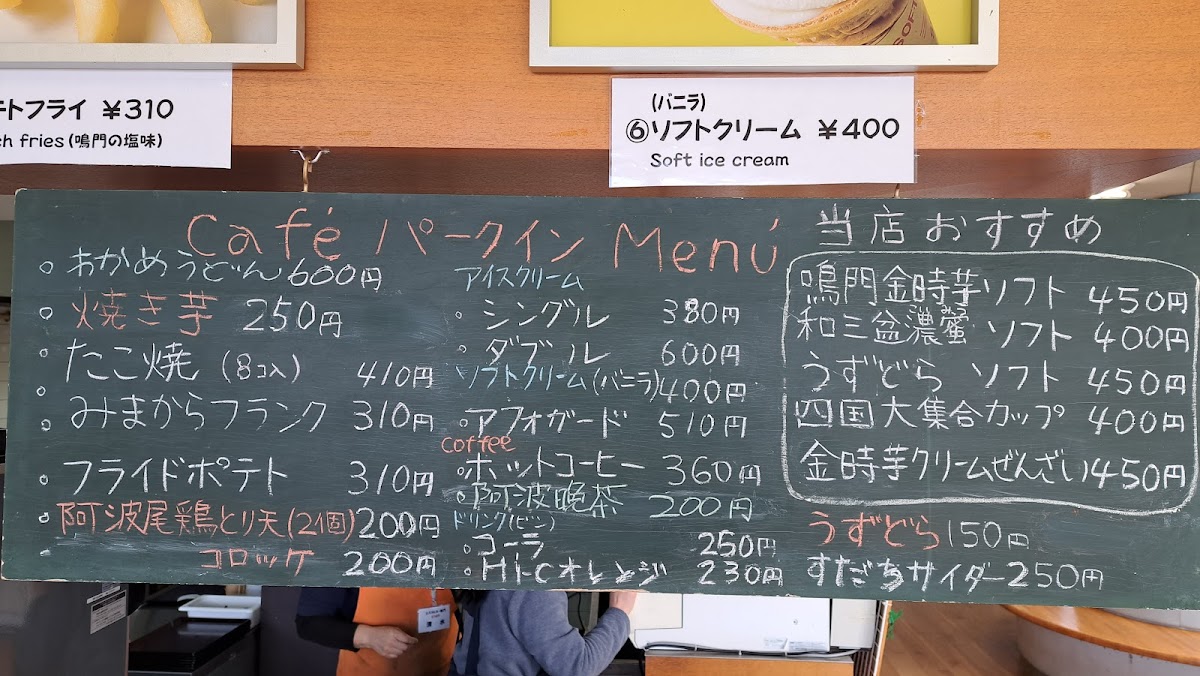 テトフライ ¥310
ch fries (鳴門の塩味)
(バニラ)
⑥ソフトクリーム ¥400
Soft ice cream
SOFT
Café パークイン Menú
おかめうどん 600円
焼き芋 250円
たこ焼 (8コ入) 410円
みまからフランク 310円
フライドポテト 310円
阿波尾鶏とり天(2個) 200円
コロッケ 200円
アイスクリーム
シングル 380円
ダブル 600円
ソフトクリーム(バニラ) 400円
アフォガード 510円
coffee
ホットコーヒー 360円
阿波晩茶 200円
ドリンク(ビン)
コーラ 250円
Hi-Cオレンジ 230円
当店おすすめ
鳴門金時芋ソフト 450円
和三盆濃蜜 ソフト 400円
うずどら ソフト 450円
四国大集合カップ 400円
金時芋クリームぜんざい 450円
うずどら 150円
すだちサイダー 250円